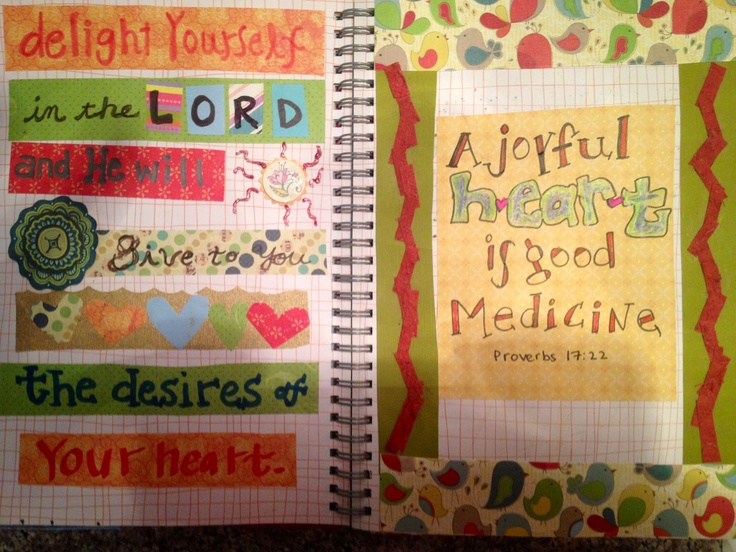 delight Yourself
in the LORD
and He will
Give to You
the desires of
Your heart.
A joyful
heart
is good
Medicine
Proverbs 17:22